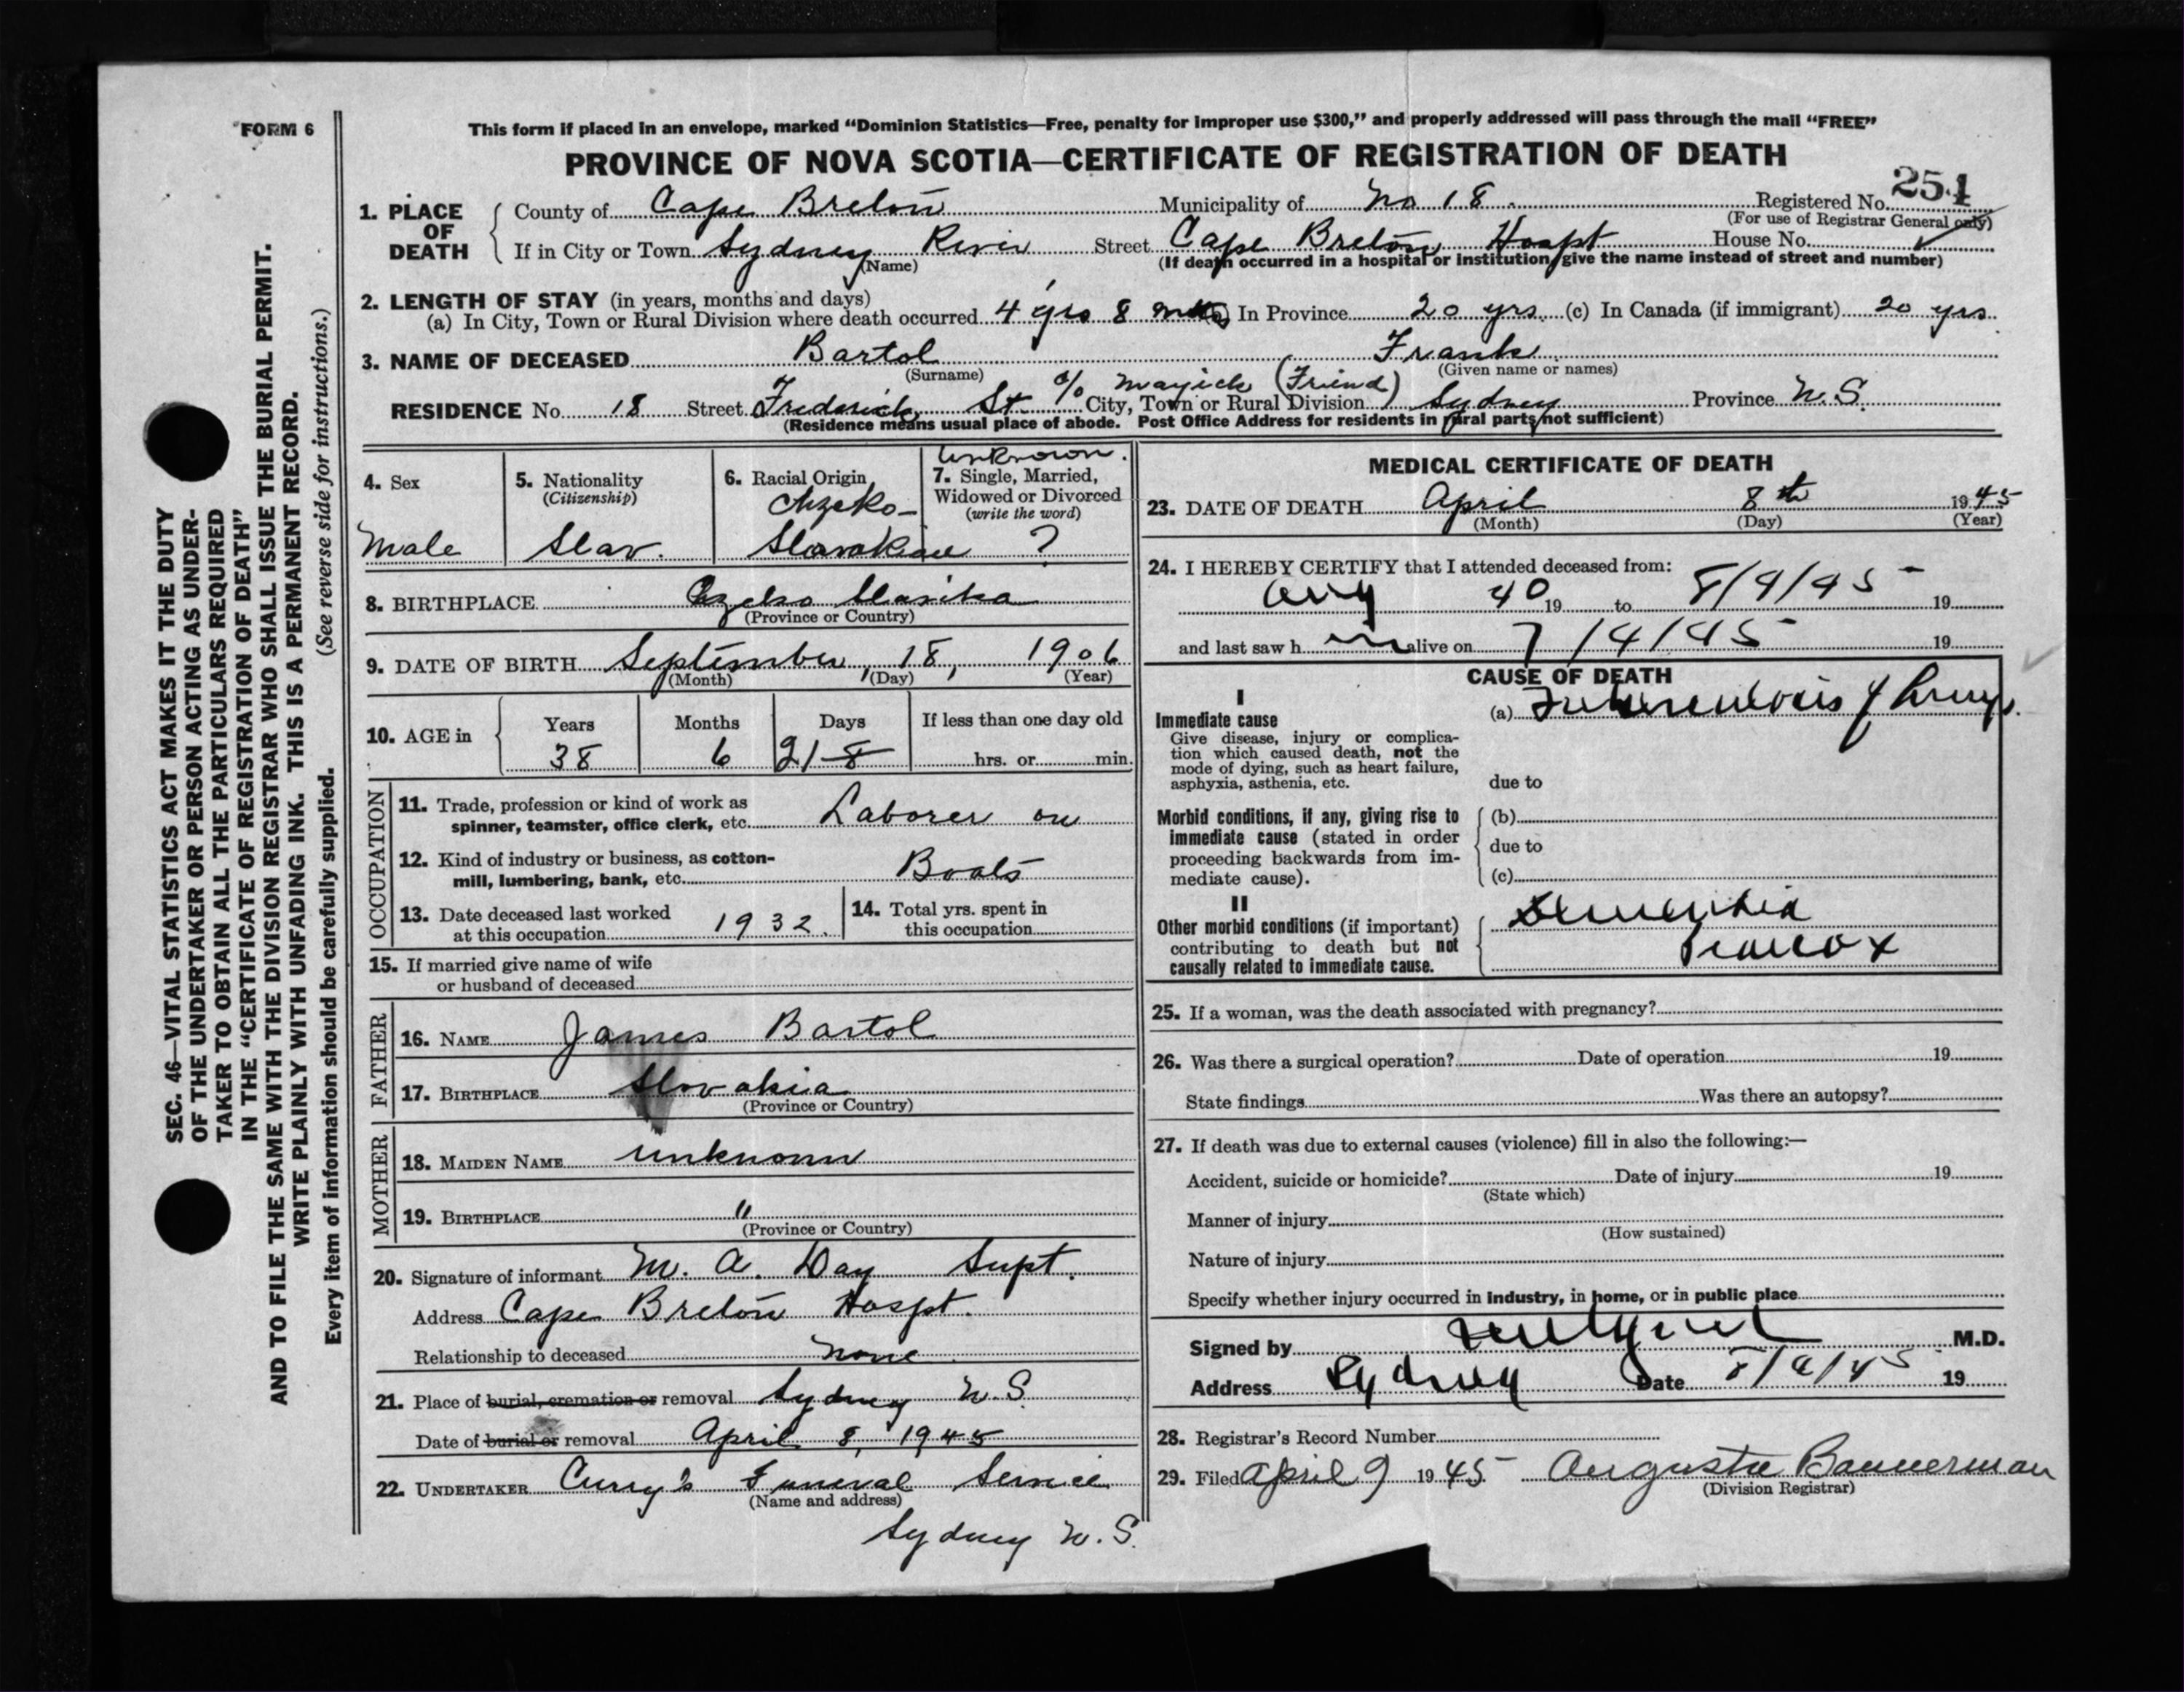 FORM 6
This form if placed in an envelope, marked “Dominion Statistics—Free, penalty for improper use $300,” and properly addressed will pass through the mail “FREE”
PROVINCE OF NOVA SCOTIA—CERTIFICATE OF REGISTRATION OF DEATH
254
1. PLACE OF DEATH
County of Cape Breton Municipality of No 18. Registered No.
(For use of Registrar General only)
If in City or Town Sydney River Street Cape Breton Hospt House No.
(Name) (If death occurred in a hospital or institution give the name instead of street and number)
2. LENGTH OF STAY (in years, months and days)
(a) In City, Town or Rural Division where death occurred 4 yrs 8 In Province 20 yrs. (c) In Canada (if immigrant) 20 yrs.
3. NAME OF DECEASED Bartol Frank
(Surname) (Given name or names)
RESIDENCE No. 18 Street Frederick St. c/o Mayick (Friend) City, Town or Rural Division Sydney Province N.S.
(Residence means usual place of abode. Post Office Address for residents in rural parts not sufficient)
4. Sex
Male
5. Nationality
(Citizenship)
Slav.
6. Racial Origin
Chzeko-
Slovakian
Unknown.
7. Single, Married,
Widowed or Divorced
(write the word)
?
8. BIRTHPLACE Czeko Slavika
(Province or Country)
9. DATE OF BIRTH September, 18, 1906
(Month) (Day) (Year)
10. AGE in
Years Months Days If less than one day old
38 6 21 8 hrs. or min.
OCCUPATION
11. Trade, profession or kind of work as
spinner, teamster, office clerk, etc. Laborer on
12. Kind of industry or business, as cotton-
mill, lumbering, bank, etc. Boats
13. Date deceased last worked
at this occupation 1932.
14. Total yrs. spent in
this occupation
15. If married give name of wife
or husband of deceased
FATHER
16. NAME James Bartol
17. BIRTHPLACE Slovakia
(Province or Country)
MOTHER
18. MAIDEN NAME unknown
19. BIRTHPLACE "
(Province or Country)
20. Signature of informant M. A. Day Supt.
Address Cape Breton Hospt.
Relationship to deceased none
21. Place of burial, cremation or removal Sydney N.S.
Date of burial or removal April 8, 1945
22. UNDERTAKER Curry's Funeral Service
(Name and address)
Sydney N.S.
MEDICAL CERTIFICATE OF DEATH
23. DATE OF DEATH April 8th 1945
(Month) (Day) (Year)
24. I HEREBY CERTIFY that I attended deceased from:
Aug 40 19 to 8/4/45 19
and last saw h im alive on 7/4/45 19
CAUSE OF DEATH
I
Immediate cause
Give disease, injury or complica-
tion which caused death, not the
mode of dying, such as heart failure,
asphyxia, asthenia, etc.
(a) Tuberculosis of Lungs.
due to
Morbid conditions, if any, giving rise to
immediate cause (stated in order
proceeding backwards from im-
mediate cause).
(b)
due to
(c)
II
Other morbid conditions (if important)
contributing to death but not
causally related to immediate cause.
Dementia
Praecox
25. If a woman, was the death associated with pregnancy?
26. Was there a surgical operation? Date of operation 19
State findings Was there an autopsy?
27. If death was due to external causes (violence) fill in also the following:—
Accident, suicide or homicide? Date of injury 19
(State which)
Manner of injury
(How sustained)
Nature of injury
Specify whether injury occurred in industry, in home, or in public place
Signed by M.D.
Address Sydney Date 8/4/45 19
28. Registrar's Record Number
29. Filed April 9 1945 Auguste Bannerman
(Division Registrar)
SEC. 46—VITAL STATISTICS ACT MAKES IT THE DUTY
OF THE UNDERTAKER OR PERSON ACTING AS UNDER-
TAKER TO OBTAIN ALL THE PARTICULARS REQUIRED
IN THE “CERTIFICATE OF REGISTRATION OF DEATH”
AND TO FILE THE SAME WITH THE DIVISION REGISTRAR WHO SHALL ISSUE THE BURIAL PERMIT.
WRITE PLAINLY WITH UNFADING INK. THIS IS A PERMANENT RECORD.
Every item of information should be carefully supplied. (See reverse side for instructions.)